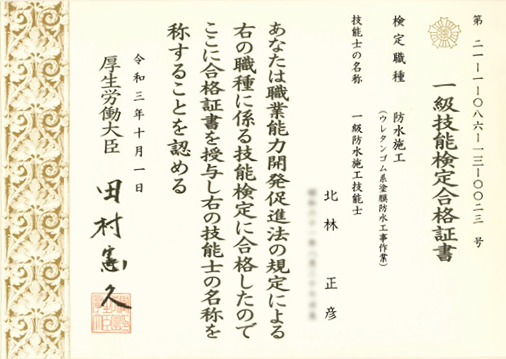 第 二一-一-〇八六-一三-〇〇二三 号
一級技能検定合格証書
検定職種 防水施工
（ウレタンゴム系塗膜防水工事作業）
技能士の名称 一級防水施工技能士
北林 正彦
あなたは職業能力開発促進法の規定による
右の職種に係る技能検定に合格したので
ここに合格証書を授与し右の技能士の名称を
称することを認める
令和三年十月一日
厚生労働大臣 田村憲久